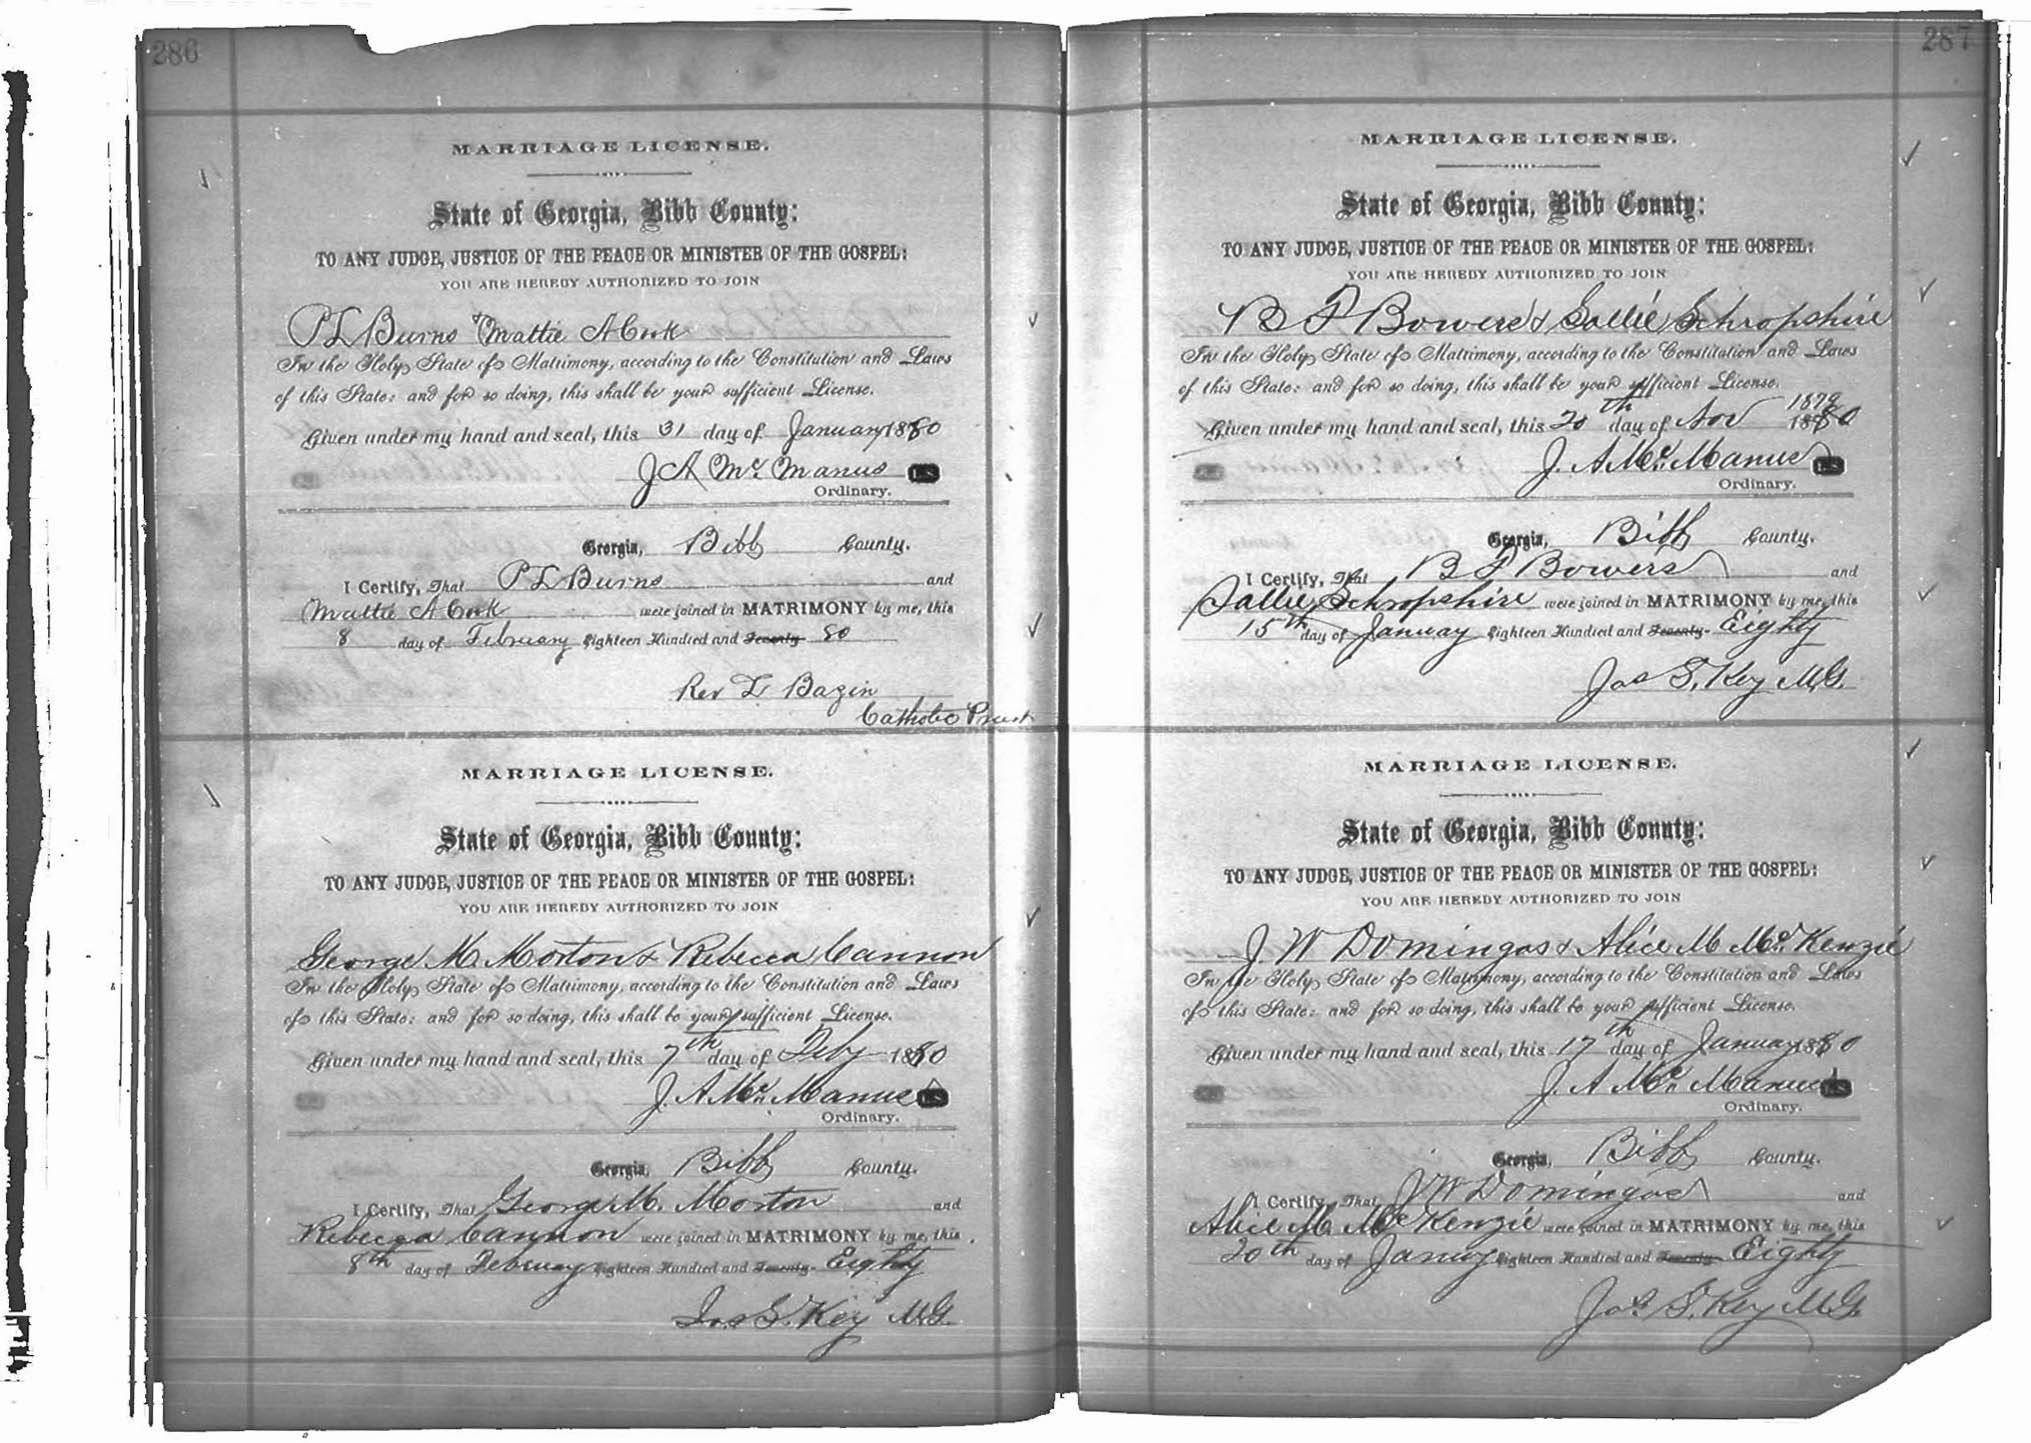 286
MARRIAGE LICENSE.
State of Georgia, Bibb County:
TO ANY JUDGE, JUSTICE OF THE PEACE OR MINISTER OF THE GOSPEL:
YOU ARE HEREBY AUTHORIZED TO JOIN
P L Burns & Mattie A Cook
In the Holy State of Matrimony, according to the Constitution and Laws
of this State: and for so doing, this shall be your sufficient License.
Given under my hand and seal, this 31 day of January 1880
J A Mc Manus L.S.
Ordinary.
Georgia, Bibb County.
I Certify, That P L Burns and
Mattie A Cook were joined in MATRIMONY by me, this
8 day of February Eighteen Hundred and Seventy 80
Rev L Bazin
Catholic Priest
MARRIAGE LICENSE.
State of Georgia, Bibb County:
TO ANY JUDGE, JUSTICE OF THE PEACE OR MINISTER OF THE GOSPEL:
YOU ARE HEREBY AUTHORIZED TO JOIN
George M. Morton & Rebecca Cannon
In the Holy State of Matrimony, according to the Constitution and Laws
of this State: and for so doing, this shall be your sufficient License.
Given under my hand and seal, this 7th day of Feby 1880
J. A. Mc Manus L.S.
Ordinary.
Georgia, Bibb County.
I Certify, That George M. Morton and
Rebecca Cannon were joined in MATRIMONY by me, this
8th day of February Eighteen Hundred and Seventy- Eighty
Jas S. Key M.G.
287
MARRIAGE LICENSE.
State of Georgia, Bibb County:
TO ANY JUDGE, JUSTICE OF THE PEACE OR MINISTER OF THE GOSPEL:
YOU ARE HEREBY AUTHORIZED TO JOIN
B F Bowers & Sallie Schropshire
In the Holy State of Matrimony, according to the Constitution and Laws
of this State: and for so doing, this shall be your sufficient License.
1879
Given under my hand and seal, this 20th day of Nov 1880
J. A. Mc Manus L.S.
Ordinary.
Georgia, Bibb County.
I Certify, That B F Bowers and
Sallie Schropshire were joined in MATRIMONY by me, this
15th day of January Eighteen Hundred and Seventy- Eighty
Jas S. Key M.G.
MARRIAGE LICENSE.
State of Georgia, Bibb County:
TO ANY JUDGE, JUSTICE OF THE PEACE OR MINISTER OF THE GOSPEL:
YOU ARE HEREBY AUTHORIZED TO JOIN
J. W Domingos & Alice M McKenzie
In the Holy State of Matrimony, according to the Constitution and Laws
of this State: and for so doing, this shall be your sufficient License.
Given under my hand and seal, this 17th day of January 1880
J. A Mc Manus L.S.
Ordinary.
Georgia, Bibb County.
I Certify, That J W Domingos and
Alice M. McKenzie were joined in MATRIMONY by me, this
20th day of Januy Eighteen Hundred and Seventy- Eighty
Jas. S. Key M.G.